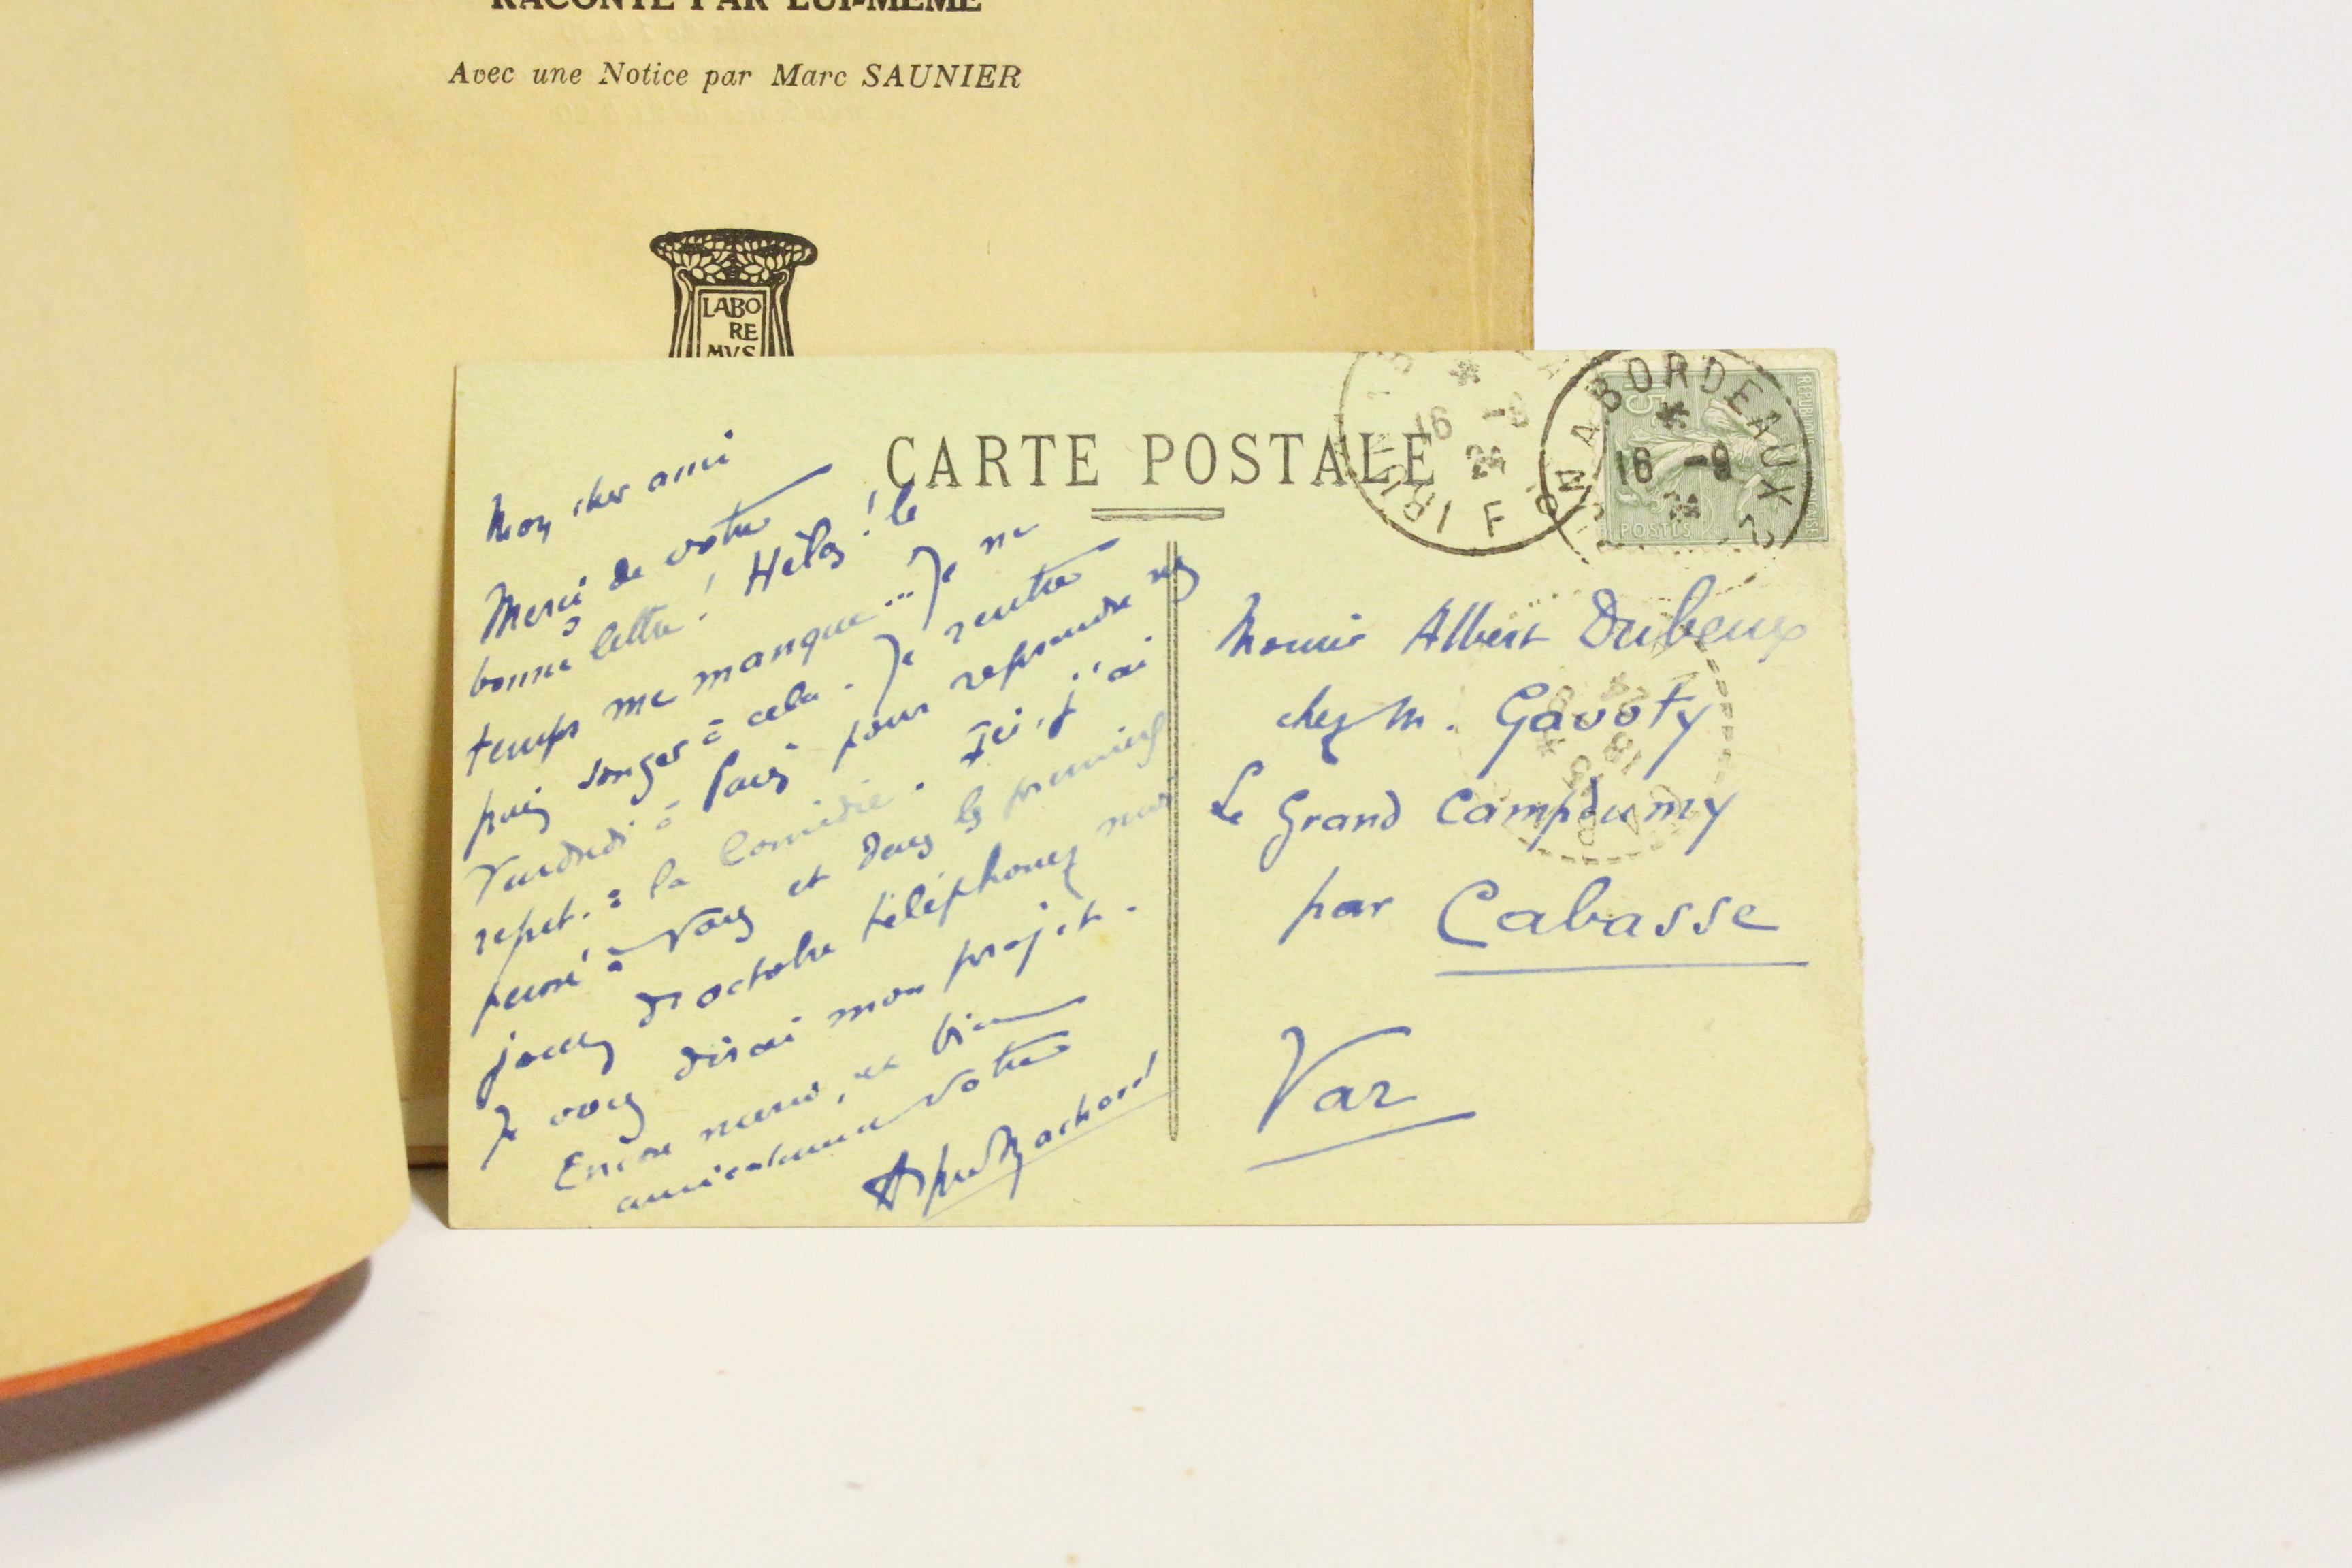 RACONTÉ PAR LUI-MÊME
Avec une Notice par Marc SAUNIER
LABO
RE
MVS
CARTE POSTALE
BORDEAUX
16 -9
24
16 -9
24
F
15
POSTES
Mon cher ami
Merci de votre
bonne lettre ! Hélas ! le
temps me manque... Je ne
puis songer à cela. Je rentre
Vendredi à Paris pour reprendre mes
répét. à la Comédie. Ici, j'ai
pensé à vous et dans les premiers
jours d'octobre téléphonez moi
Je vous dirai mon projet.
Encore merci, et bien
amicalement votre
Monsieur Albert Dubeux
chez M. Gavoty
Le Grand Campdumy
par Cabasse
Var